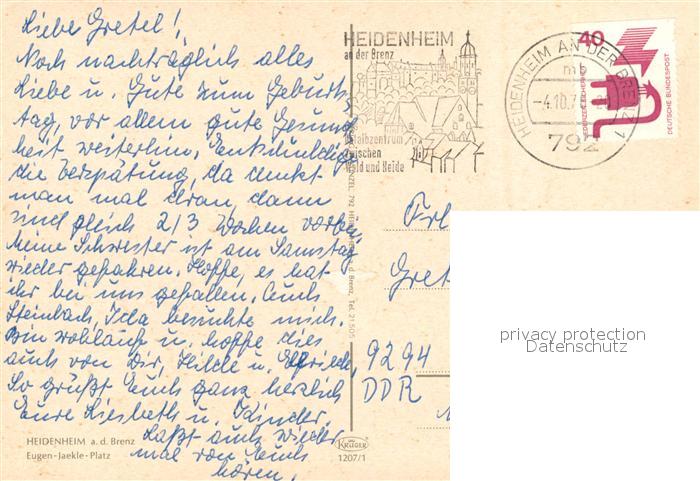 Liebe Gretel!
Noch nachträglich alles
Liebe u. Gute zum Geburts-
tag, vor allem gute Gesund
heit weiterhin. Entschuldig
die Verspätung, da denkt
man mal dran, dann
sind gleich 2/3 Wochen vorbei
Meine Schwester ist am Samstag
wieder gefahren. Hoffe, es hat
ihr bei uns gefallen. Auch
Steinbach, Ida besuchte mich.
Bin wohlauf u. hoffe dies
auch von Dir, Hilde u. Elfriede,
So grüßt Euch ganz herzlich
Eure Liesbeth u. Kinder.
Laßt auch wieder
mal von Euch
hören.
HEIDENHEIM a. d. Brenz
Eugen-Jaekle-Platz
HEIDENHEIM
an der Brenz
zwischen
Wald und Heide
HEIDENHEIM AN DER BRENZ 1
mb
-4.10.7
792
40
DEUTSCHE BUNDESPOST
792 HEIDENHEIM a. d. Brenz, Tel. 21 505
Frl
Gret
9294
DDR
KRÜGER
1207/1
privacy protection
Datenschutz